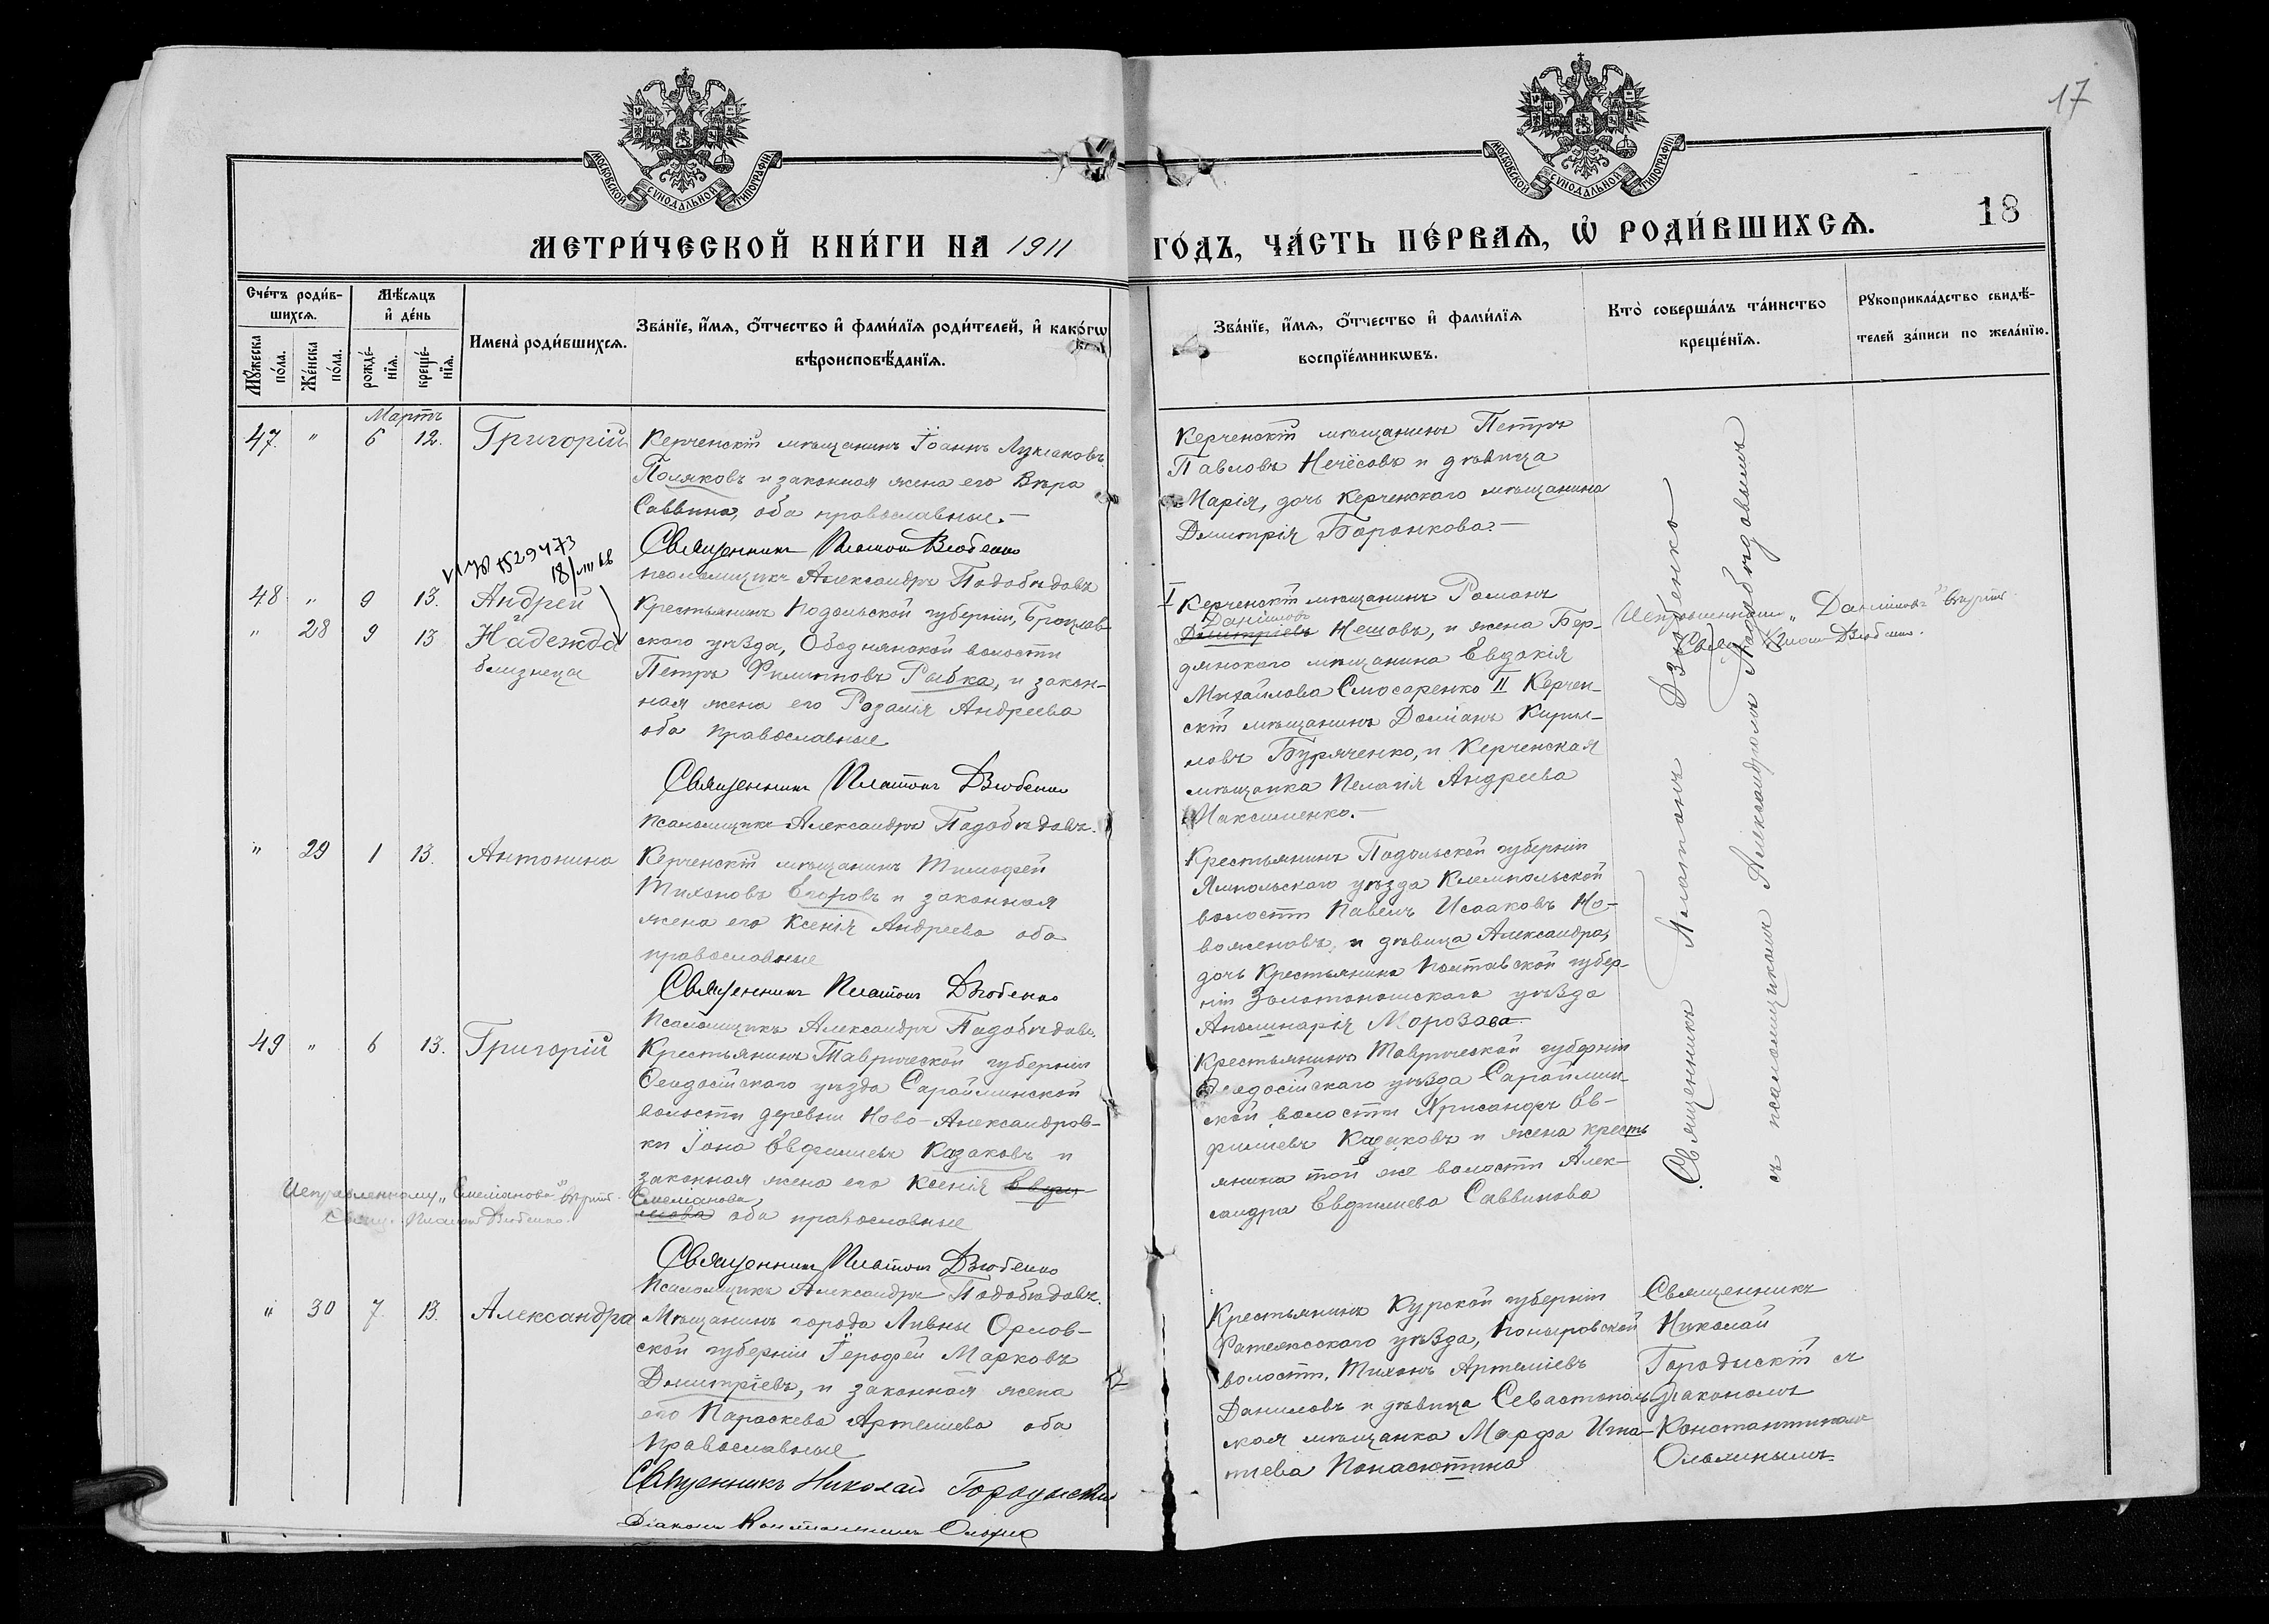 17
МОСКОВСКОЙ СѴНОДАЛЬНОЙ ТИПОГРАФІИ
МОСКОВСКОЙ СѴНОДАЛЬНОЙ ТИПОГРАФІИ
МЕТРИ́ЧЕСКОЙ КНИ́ГИ НА 1911 ГО́ДЪ, ЧА́СТЬ ПЕ́РВАѦ, Ѡ҆ РОДИ́ВШИХСѦ. 18
Сче́тъ роди́в-
шихсѧ.
Мꙋ́жеска по́ла.
Же́нска по́ла.
Мѣ́сѧцъ
и҆ де́нь
рожде́-
нїѧ.
креще́-
нїѧ.
Имена̀ роди́вшихсѧ.
Зва́нїе, и҆́мѧ, о҆́тчество и҆ фами́лїѧ роди́телей, и҆ како́гѡ
вѣроисповѣ́данїѧ.
Зва́нїе, и҆́мѧ, о҆́тчество и҆ фами́лїѧ
воспрїе́мникѡвъ.
Кто̀ соверша́лъ та́инство
креще́нїѧ.
Рꙋкоприкла́дство свидѣ́-
телей за́писи по жела́нїю.
Мартъ
47. " 6 12. Григорій
Керченскій мѣщанинъ Іоаннъ Лукіановъ
Поляковъ и законная жена его Вѣра
Саввина, оба православные.—
Священникъ Платонъ Дзюбенко
псаломщикъ Александръ Подобѣдовъ
Керченскій мѣщанинъ Петръ
Павловъ Нечёсовъ и дѣвица
Марія, дочь Керченского мѣщанина
Димитрія Баранкова.—
18/III 68
48 " 9 13. Андрей
" 28 9 13 и Надежда
близнецы
Крестьянинъ Подольской губерніи, Брацлав-
ского уѣзда, Ободнянской волости
Петръ Филипповъ Рыбка, и закон-
ная жена его Розалія Андреева
оба православные
Священникъ Платонъ Дзюбенко
Псаломщикъ Александръ Подобѣдовъ.
I Керченскій мѣщанинъ Романъ
Даниловъ
Димитріевъ Нешовъ, и жена Бер-
дянского мѣщанина Евдокія
Михайлова Слюсаренко II Керчен-
скій мѣщанинъ Доміанъ Кирил-
ловъ Буряченко, и Керченская
мѣщанка Пелагія Андреева
Максименко.—
Исправленному „Даниловъ" вѣрить.
Свящ. Платонъ Дзюбенко.
" 29 1 13. Антонина
Керченскій мѣщанинъ Тимофей
Тихоновъ Егоровъ и законная
жена его Ксенія Андреева оба
православные
Священникъ Платонъ Дзюбенко
Псаломщикъ Александръ Подобѣдовъ.
Крестьянинъ Подольской губерніи
Ямпольскаго уѣзда Клемпольской
волости Павелъ Исааковъ Но-
воженовъ, и дѣвица Александра,
дочь Крестьянина Полтавской губер-
ніи Золотоношскаго уѣзда
Аполинарія Морозова.
49 " 6 13. Григорій
Крестьянинъ Таврической губерніи
Ѳеодосійскаго уѣзда Сарайминской
волости деревни Ново-Александров-
ки Іона Евфиміевъ Казаковъ и
законная жена его Ксенія Евфи-
Емеліанова
мова оба православные
Священникъ Платонъ Дзюбенко
Псаломщикъ Александръ Подобѣдовъ.
Исправленному „Емеліанова" вѣрить.
Свящ. Платонъ Дзюбенко.
Крестьянинъ Таврической губерніи
Ѳеодосійскаго уѣзда Сараймин-
ской волости Хрисанфъ Ев-
фиміевъ Казаковъ и жена кресть
янина той же волости Алек-
сандра Евфиміева Саввинова
Священникъ Платонъ Дзюбенко
съ псаломщикомъ Александромъ Подобѣдовымъ
" 30 7 13. Александра
Мѣщанинъ города Ливны Орлов-
ской губерніи Іерофей Марковъ
Димитріевъ, и законная жена
его Параскева Артемиева оба
православные
Священникъ Николай Городыскій
Діаконъ Константинъ
Крестьянинъ Курской губерніи
Фатежского уѣзда, Поныровской
волости, Тихонъ Артеміевъ
Даниловъ и дѣвица Севастополь-
ская мѣщанка Марфа Игна-
тиева Панасютина
Священникъ
Николай
Городискій съ
діакономъ
Константиномъ